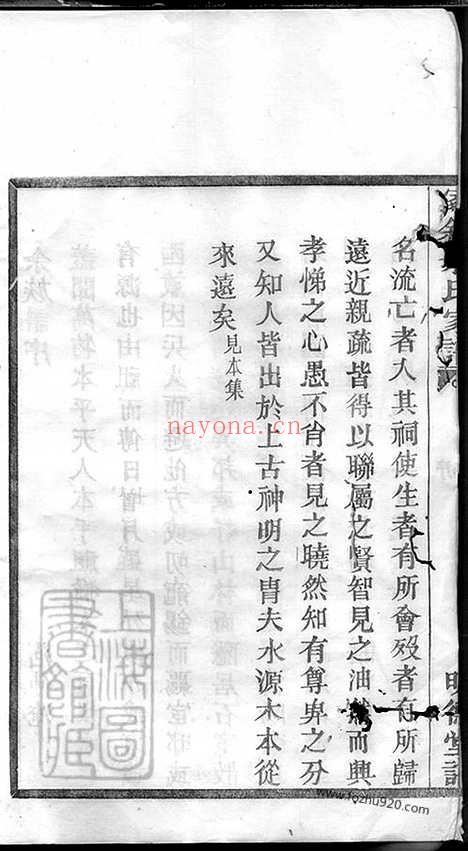 名流亡者人其祠使生者有所會歿者有所歸
遠近親疏皆得以聯屬之賢智見之油然而興
孝悌之心愚不肖者見之曉然知有尊卑之分
又知人皆出於上古神明之胄夫水源木本從
來遠矣見本集
氏家譜
上海圖書館藏
nayona.cn
www.fozhu920.com